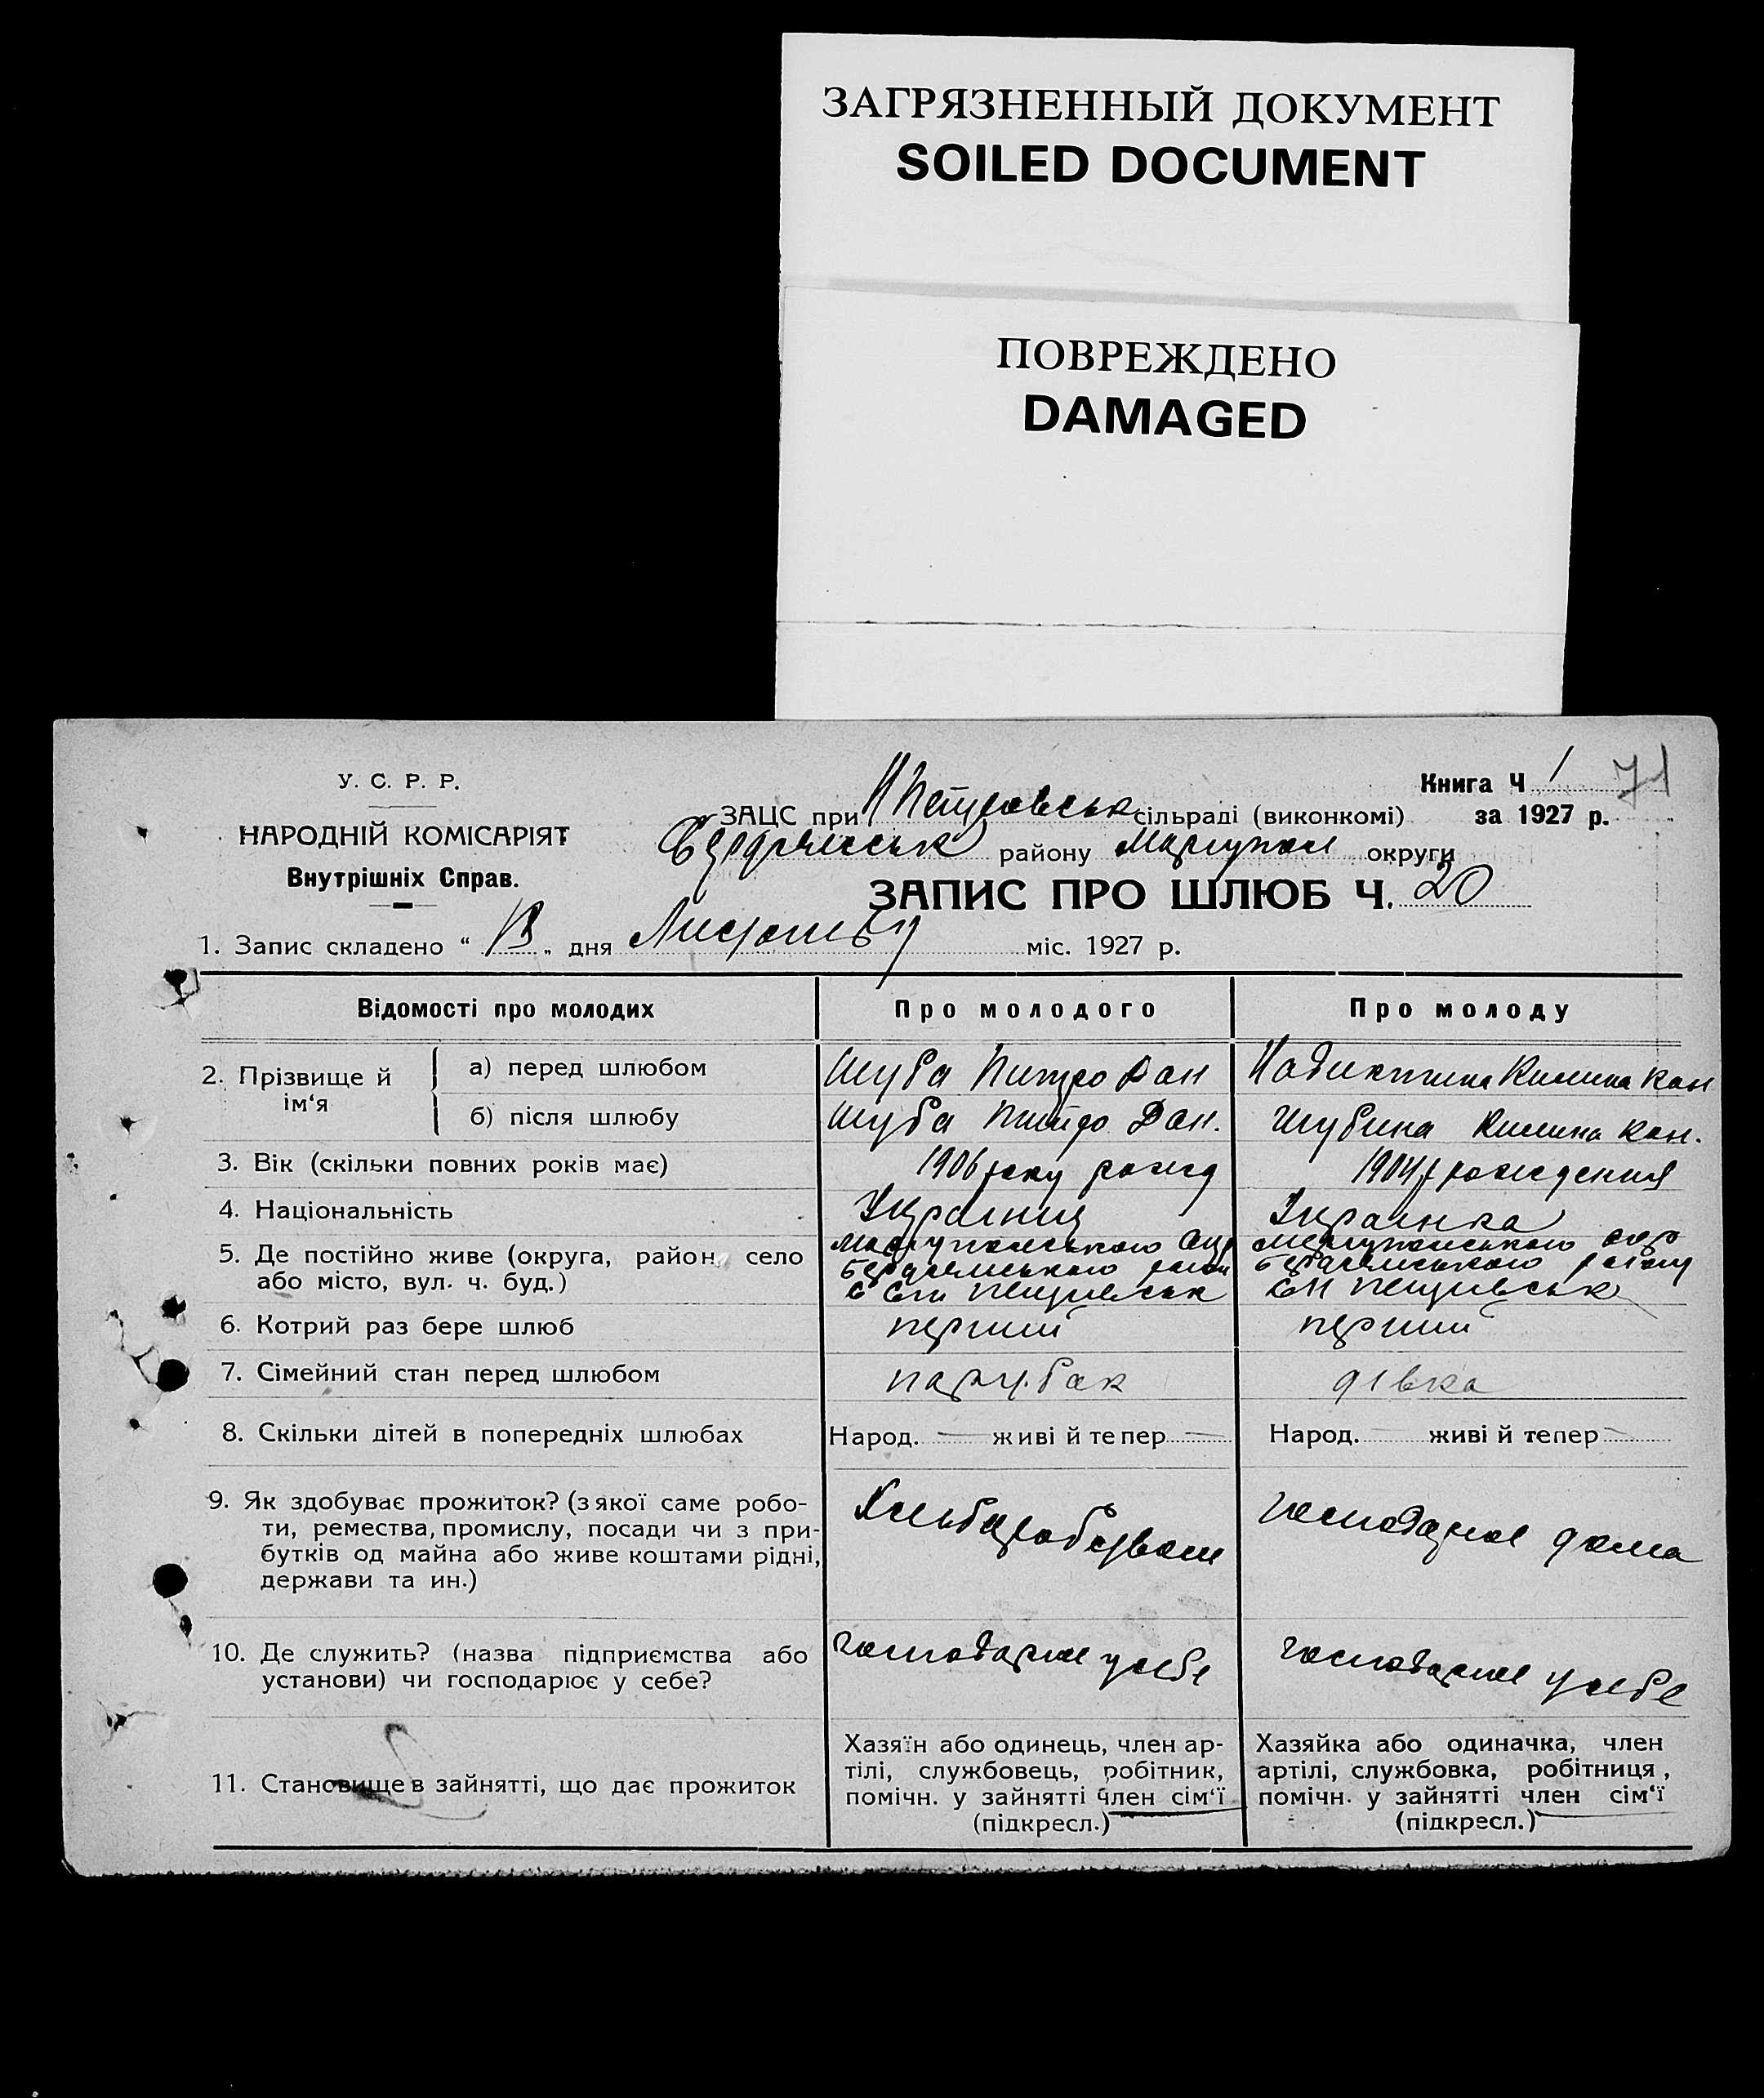 ЗАГРЯЗНЕННЫЙ ДОКУМЕНТ
SOILED DOCUMENT
ПОВРЕЖДЕНО
DAMAGED
У. С. Р. Р.
НАРОДНІЙ КОМІСАРІЯТ
Внутрішніх Справ.
Книга Ч 1 71
ЗАЦС при Петровськ сільраді (виконкомі) за 1927 р.
району Маріупол округи
ЗАПИС ПРО ШЛЮБ Ч. 20
1. Запис складено " " дня Листопаду міс. 1927 р.
Відомості про молодих Про молодого Про молоду
2. Прізвище й ім‘я
а) перед шлюбом Шуба Питро Дан
б) після шлюбу Шуба Питро Дан. Шубина
3. Вік (скільки повних років має) 1906 року рожд 1904 р рождения
4. Національність Украінець Украінка
5. Де постійно живе (округа, район, село
або місто, вул. ч. буд.)
Маріупольського Окр
Маріупольського окр
6. Котрий раз бере шлюб перший перший
7. Сімейний стан перед шлюбом парубак дівка
8. Скільки дітей в попередніх шлюбах Народ. — живі й тепер — Народ. — живі й тепер —
9. Як здобуває прожиток? (з якої саме робо-
ти, ремества, промислу, посади чи з при-
бутків од майна або живе коштами рідні,
держави та ин.)
господарює дома
10. Де служить? (назва підприємства або
установи) чи господарює у себе?
господарює у себе
господарює у себе
11. Становище в зайнятті, що дає прожиток
Хазяїн або одинець, член ар-
тілі, службовець, робітник,
помічн. у зайнятті член сім‘ї
(підкресл.)
Хазяйка або одиначка, член
артілі, службовка, робітниця,
помічн. у зайнятті член сім‘ї
(підкресл.)